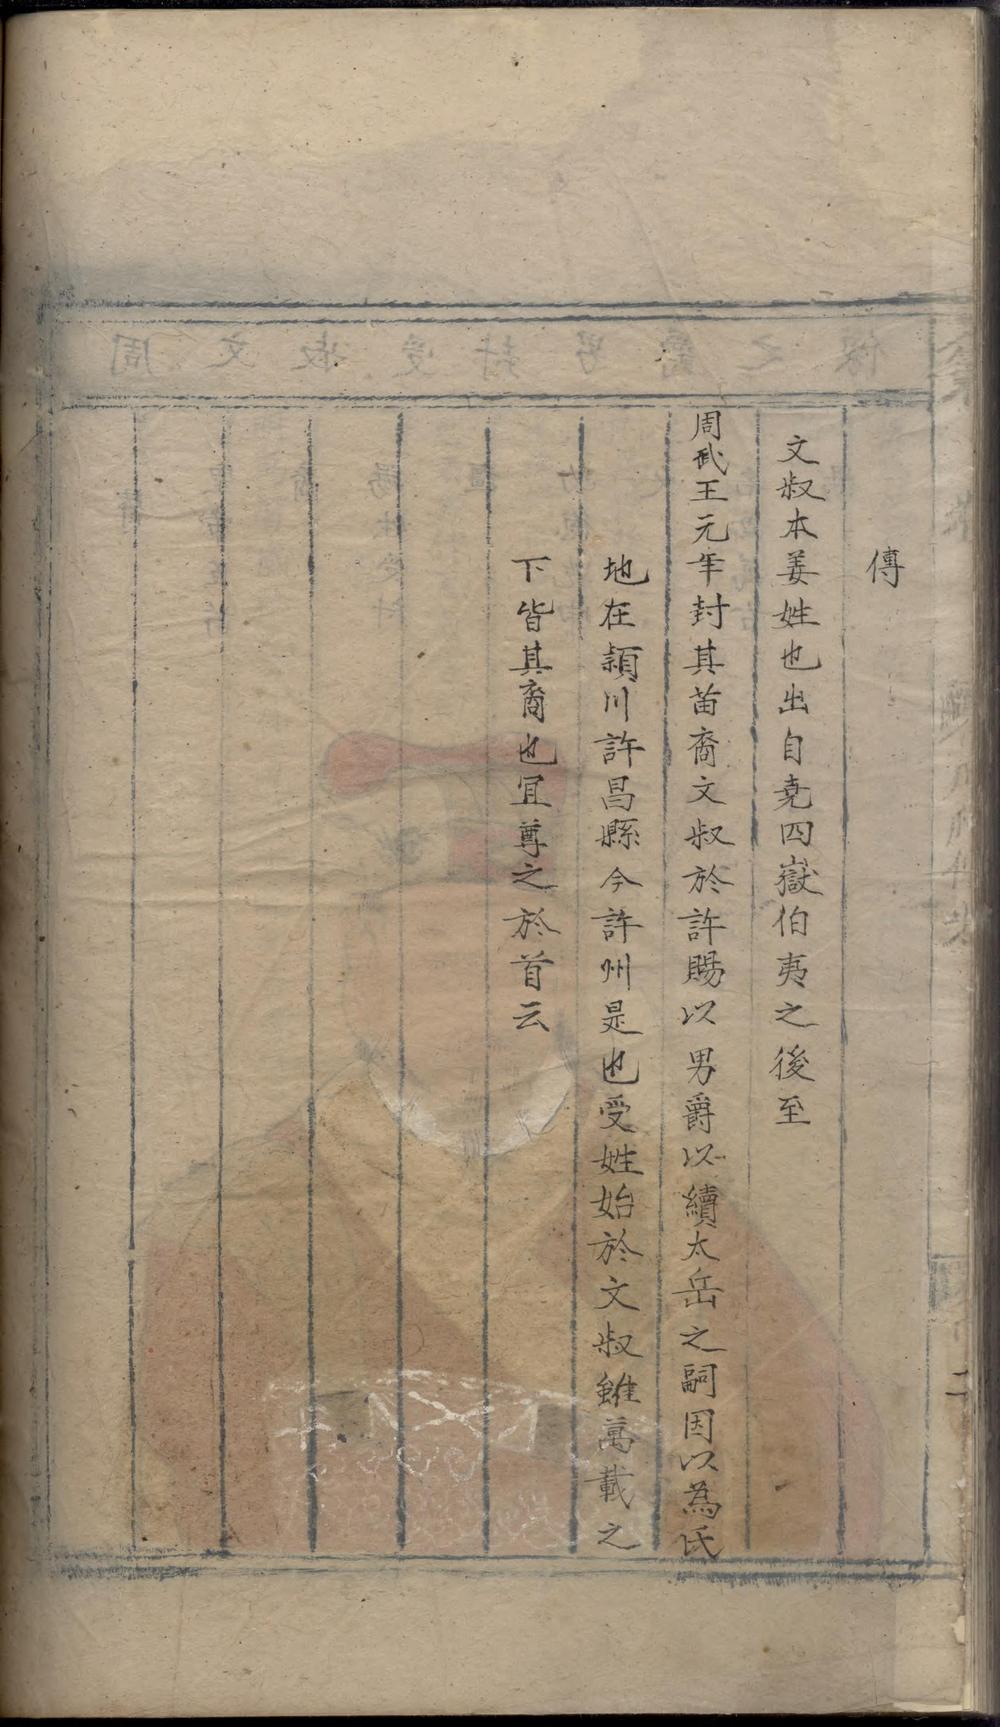 傳
文叔本姜姓也出自堯四嶽伯夷之後至
周武王元年封其苗裔文叔於許賜以男爵以續太岳之嗣因以為氏
地在頴川許昌縣今許州是也受姓始於文叔雖萬載之
下皆其裔也冝尊之於首云
二